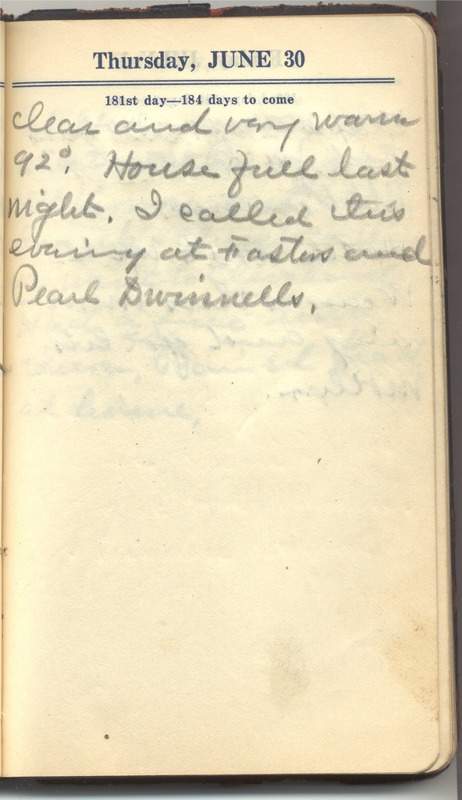 Thursday, JUNE 30
181st day—184 days to come
clear and very warm
92°. House full last
night. I called this
evening at Fosters and
Pearl Dwinnells.